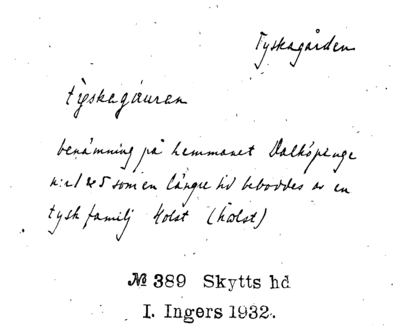 Tyskagården
tyskagáuren
benämning på hemmanet Dalköpinge
n:r 1 & 5 som en längre tid beboddes av en
tysk familj Holst (hålst)
№ 389 Skytts hd
I. Ingers 1932.